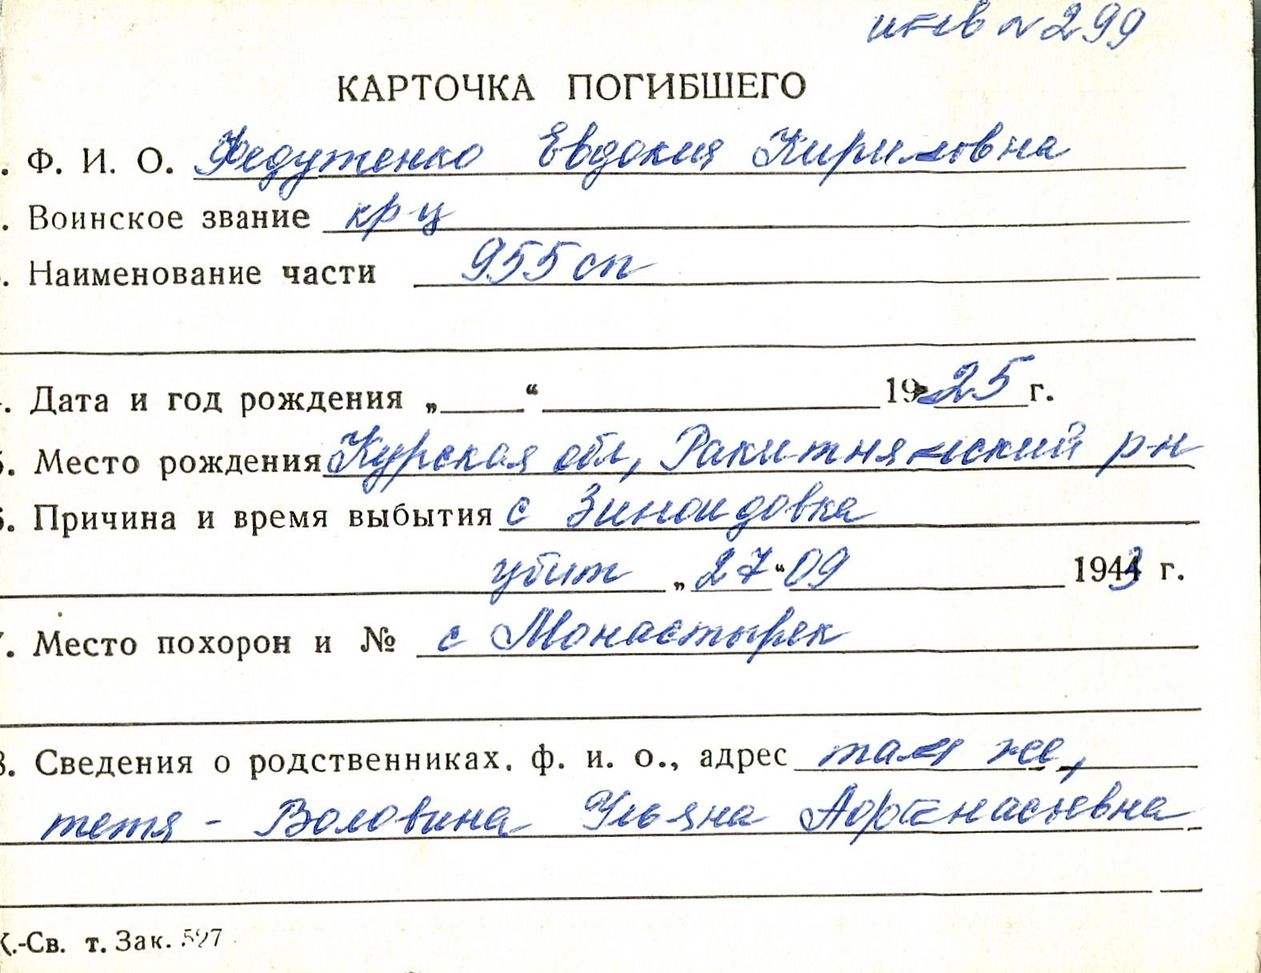 инв № 299
КАРТОЧКА ПОГИБШЕГО
. Ф. И. О. Федутенко Евдокия Кириловна
. Воинское звание кр-ц
. Наименование части 955 сп
. Дата и год рождения „ “ 1925 г.
5. Место рождения Курская обл, Ракитнянский р-н
6. Причина и время выбытия с Зиноидовка
убит „27“ 09 1943 г.
7. Место похорон и № с Монастырек
8. Сведения о родственниках, ф. и. о., адрес там же,
тетя - Воловина Ульяна Афанасьевна
К.-Св. т. Зак. 597